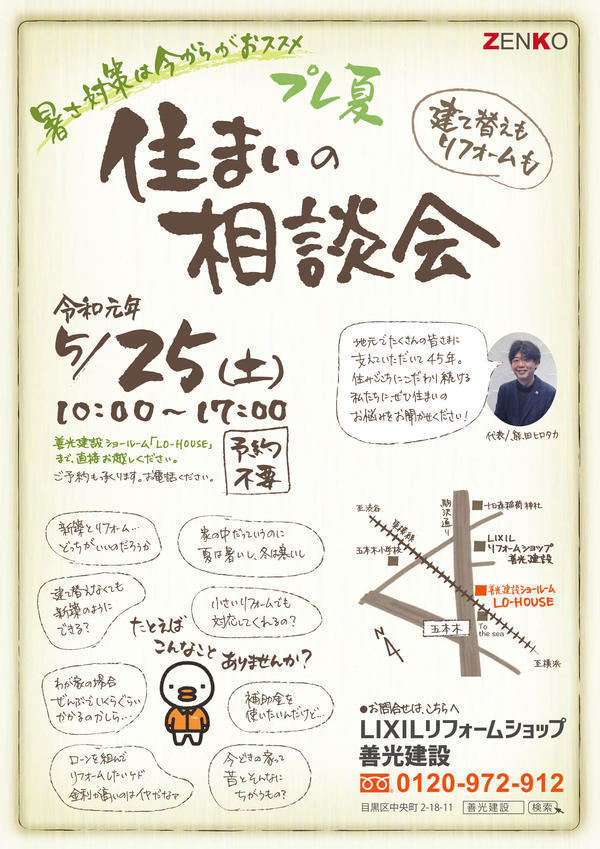 ZENKO
暑さ対策は今からがおススメ
プレ夏
建て替えも
リフォームも
住まいの
相談会
令和元年
5/25(土)
10:00~17:00
善光建設ショールーム「LO-HOUSE」
まで、直接お越しください。
ご予約も承ります。お電話ください。
予約
不要
地元でたくさんの皆さまに
支えていただいて45年。
住みごこちにこだわり続ける
私たちに、ぜひ住まいの
お悩みをお聞かせください!
代表/熊田ヒロタカ
新築とリフォーム…
どっちがいいのだろうか
家の中だっていうのに
夏は暑いし、冬は寒いし
建て替えなくても
新築のように
できる?
小さいリフォームでも
対応してくれるの?
たとえば
こんなこと ありませんか?
わが家の場合
ぜんぶでいくらぐらい
かかるのかしら…
補助金を
使いたいんだけど…
ローンを組んで
リフォームしたいケド
金利が高いのはイヤだなァ
今どきの家って
昔とそんなに
ちがうもの?
至渋谷
東横線
駒沢通り
十日森稲荷神社
五本木小学校
LIXIL
リフォームショップ
善光建設
善光建設ショールーム
LO-HOUSE
五本木
To
the sea
N
至横浜
●お問合せは、こちらへ
LIXILリフォームショップ
善光建設
0120-972-912
目黒区中央町2-18-11
善光建設
検索